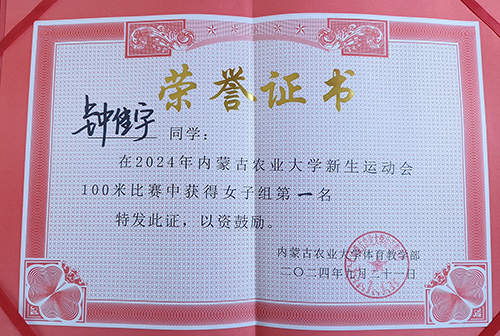 荣誉证书
钟佳宇 同学：
在2024年内蒙古农业大学新生运动会
100米比赛中获得女子组第一名
特发此证，以资鼓励。
内蒙古农业大学体育教学部
二〇二四年九月二十一日